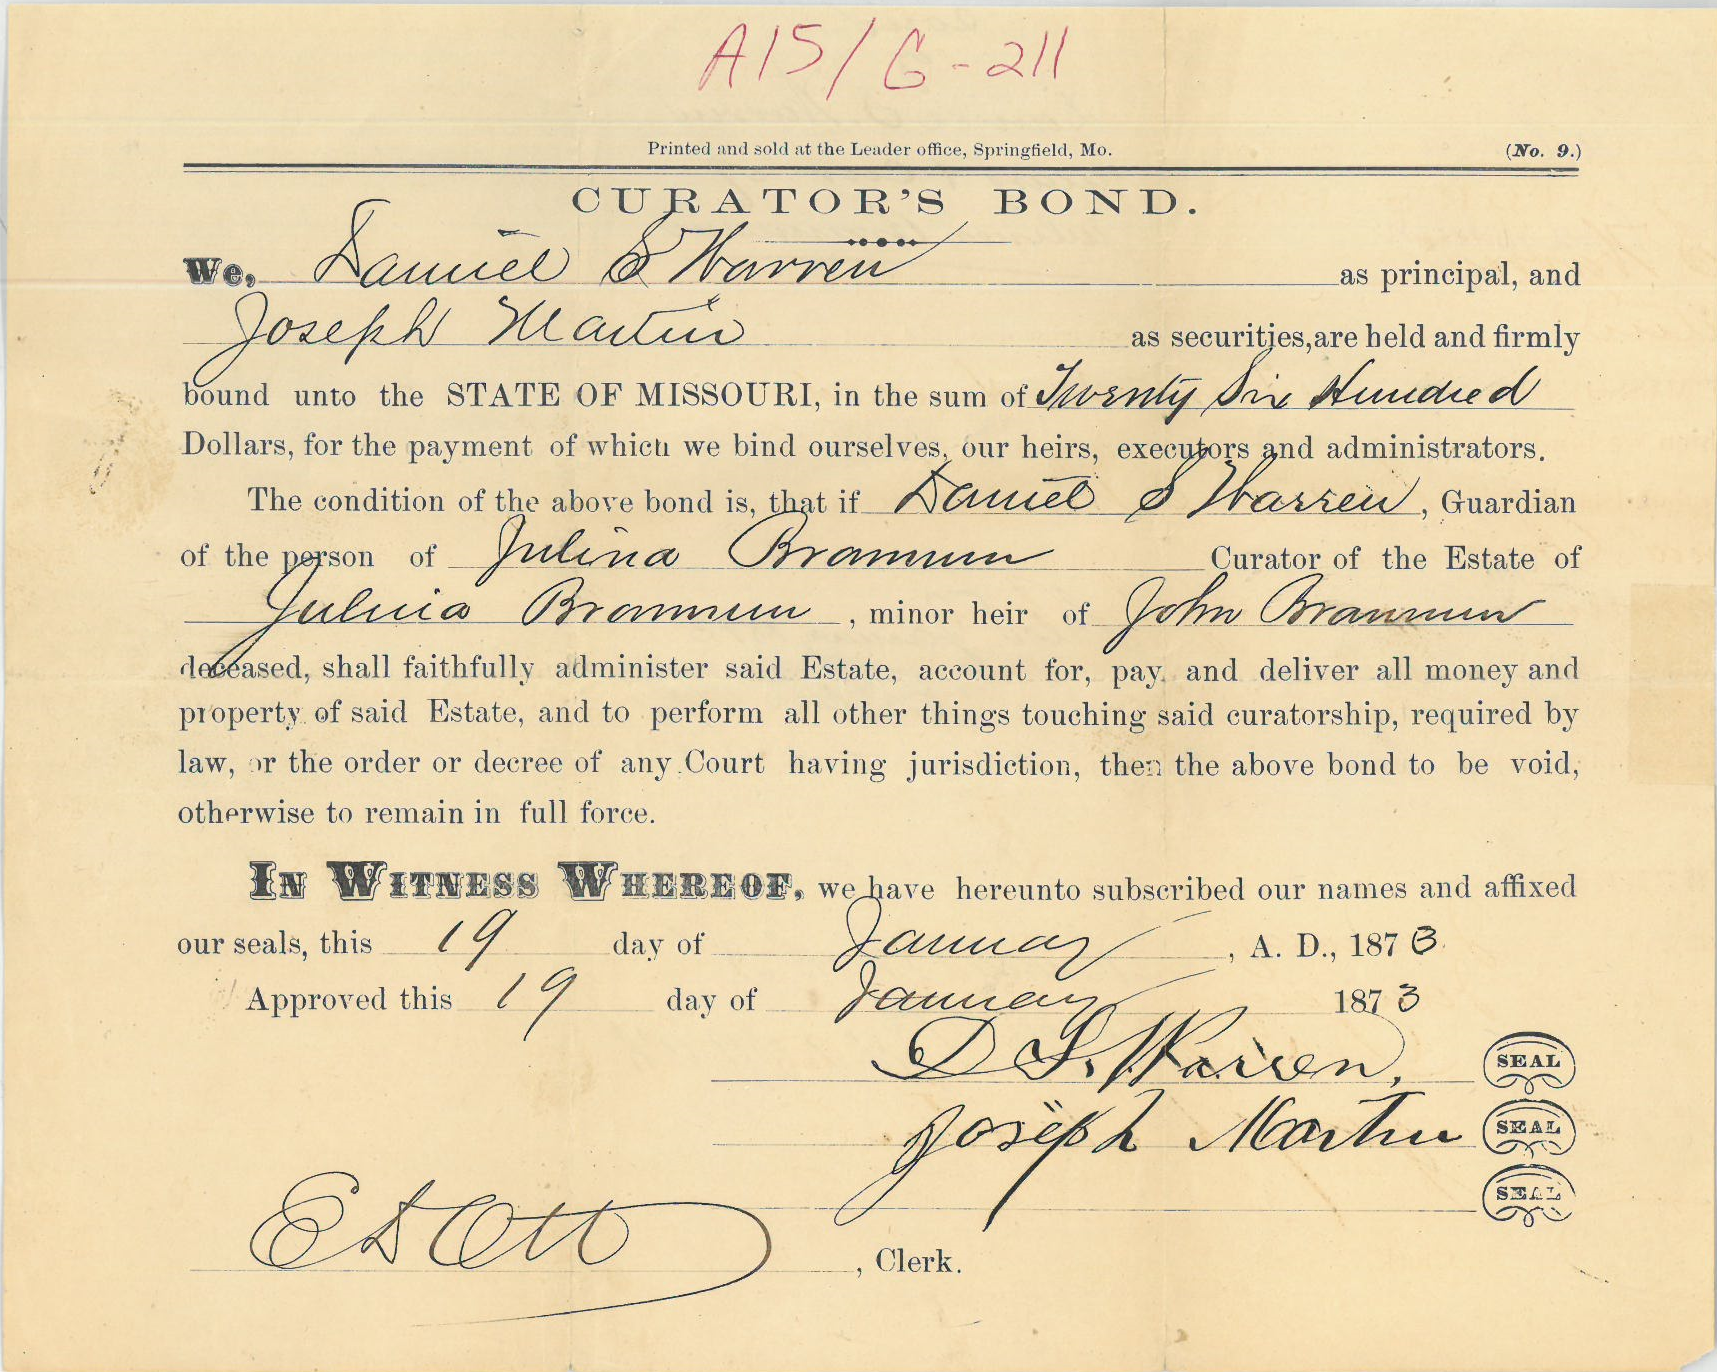 A15/G-211
Printed and sold at the Leader office, Springfield, Mo. (No. 9.)
CURATOR'S BOND.
We, Daniel S Warren as principal, and
Joseph Martin as securities, are held and firmly
bound unto the STATE OF MISSOURI, in the sum of Twenty Six Hundred
Dollars, for the payment of which we bind ourselves, our heirs, executors and administrators.
The condition of the above bond is, that if Daniel S Warren, Guardian
of the person of Julina Brannum Curator of the Estate of
Julina Brannum, minor heir of John Brannum
deceased, shall faithfully administer said Estate, account for, pay and deliver all money and
property of said Estate, and to perform all other things touching said curatorship, required by
law, or the order or decree of any Court having jurisdiction, then the above bond to be void,
otherwise to remain in full force.
IN WITNESS WHEREOF, we have hereunto subscribed our names and affixed
our seals, this 19 day of January, A. D., 1873
Approved this 19 day of January 1873
D S. Warren, SEAL
Joseph Martin SEAL
SEAL
E D Ott, Clerk.